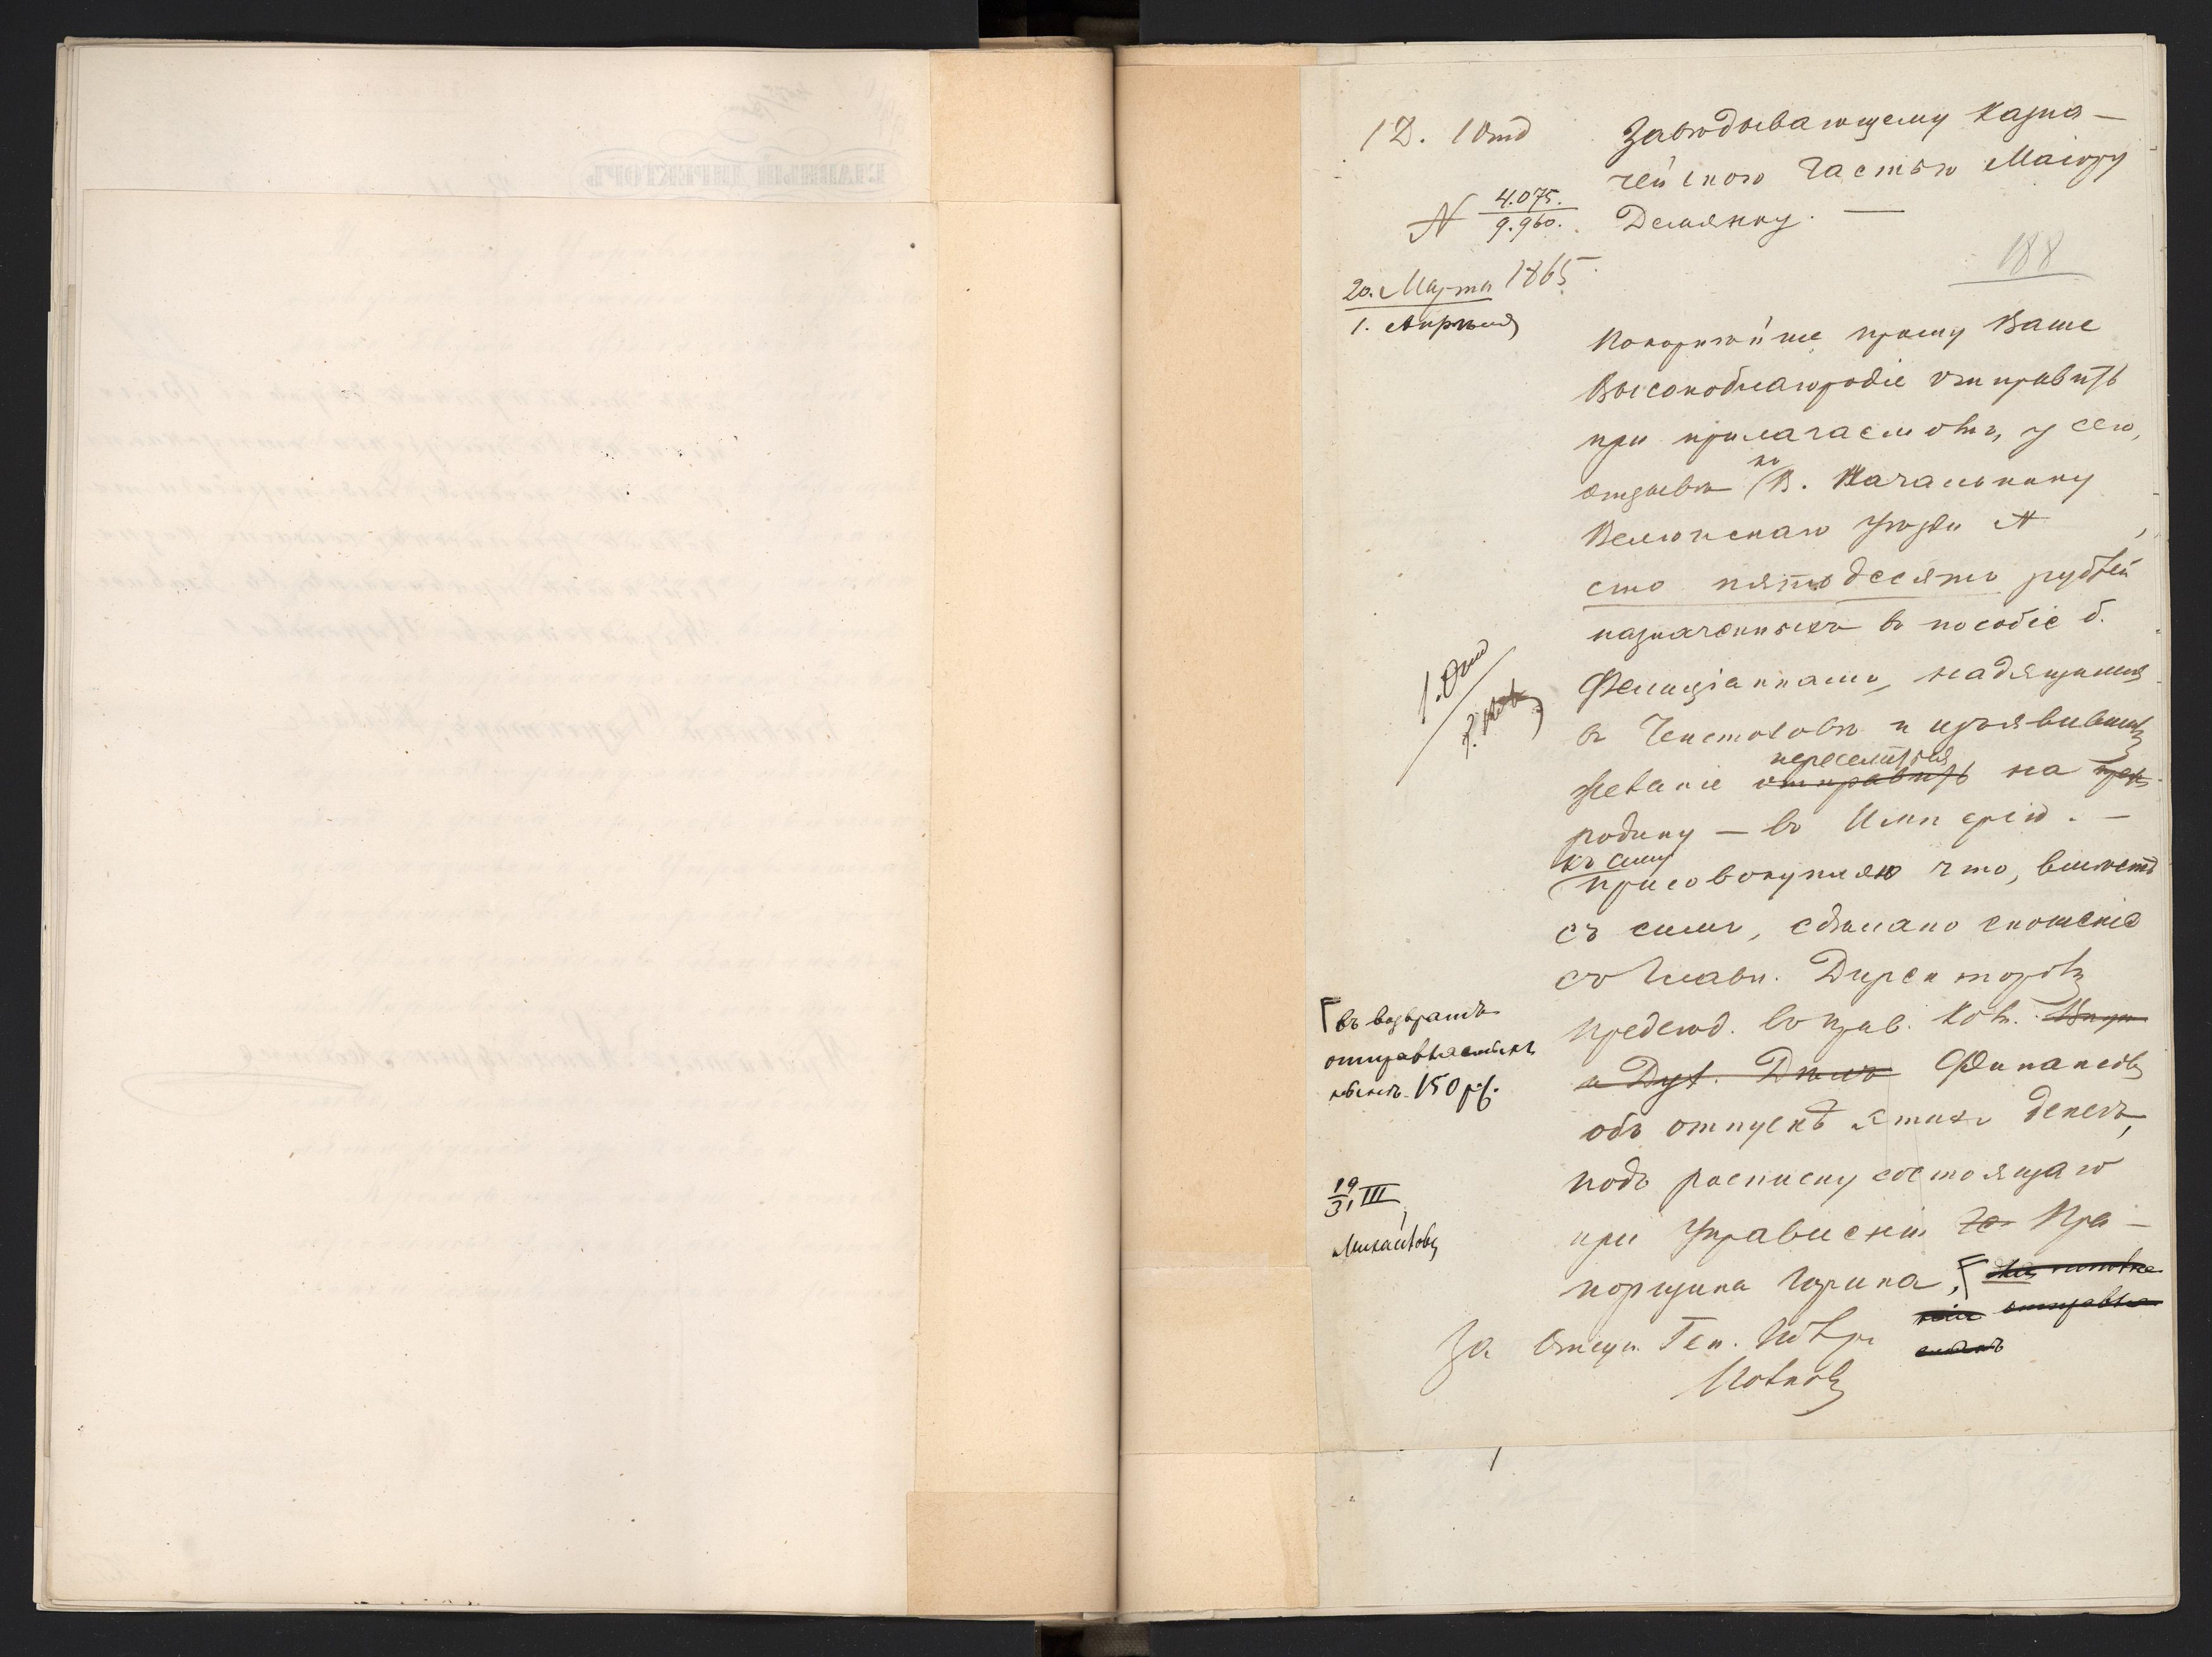 1 Д. 1 Отд
№ 4.075. / 9.960.
20. Марта 1865
1. Апрѣля
Завѣдывающему Казна–
чейскою Частью Маіору
Демянку. —
188
Покорнѣйше прошу Ваше
Высокоблагородіе отправить
при прилагаемомъ, у сего,
отзывѣ къ В. Начальнику
Велюнскаго Уѣзда №
сто пятьдесятъ рублей
назначенныхъ въ пособіе б.
Фелиціанкамъ, находящимся
въ Ченстоховѣ и изъявившимъ
переселиться
желаніе отправить на
родину — въ Имперію. —
къ сему
присовокупляю что, вмѣстѣ
съ симъ, сдѣлано сношеніе
со Главн. Директоромъ
Предсѣд. въ Прав. Ком. Внутр
и Дух. Дѣлъ Финансовъ
объ отпускѣ этихъ денегъ,
подъ росписку состоящаго
при Управленіи Пра–
порщика Горина,
отправля
За Отсут. Ген. Пол.
1. Отд
въ возвратъ
отправляемыхъ
150 р.
19/31 III
Михайловъ